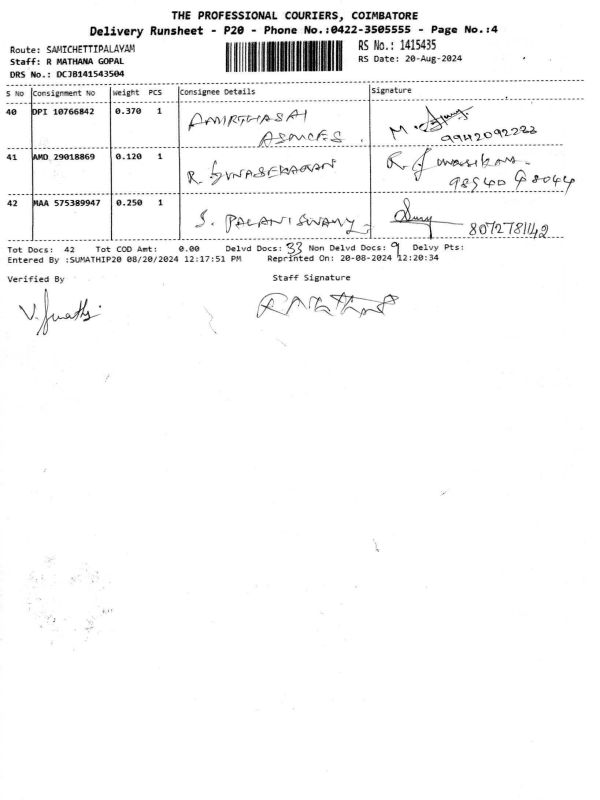 THE PROFESSIONAL COURIERS, COIMBATORE
Delivery Runsheet - P20 - Phone No.:0422-3505555 - Page No.:4
Route: SAMICHETTIPALAYAM
Staff: R MATHANA GOPAL
DRS No.: DCJB141543504
RS No.: 1415435
RS Date: 20-Aug-2024
S No Consignment No Weight PCS Consignee Details Signature
40 DPI 10766842 0.370 1 AMIRTHASAI
9942092233
41 AMD 29018869 0.120 1 R GUNASEKARAN R.
98940 48044
42 MAA 575389947 0.250 1 S. PALANISWAMY
8072781142
Tot Docs: 42 Tot COD Amt: 0.00 Delvd Docs: 33 Non Delvd Docs: 9 Delvy Pts:
Entered By :SUMATHIP20 08/20/2024 12:17:51 PM Reprinted On: 20-08-2024 12:20:34
Verified By Staff Signature